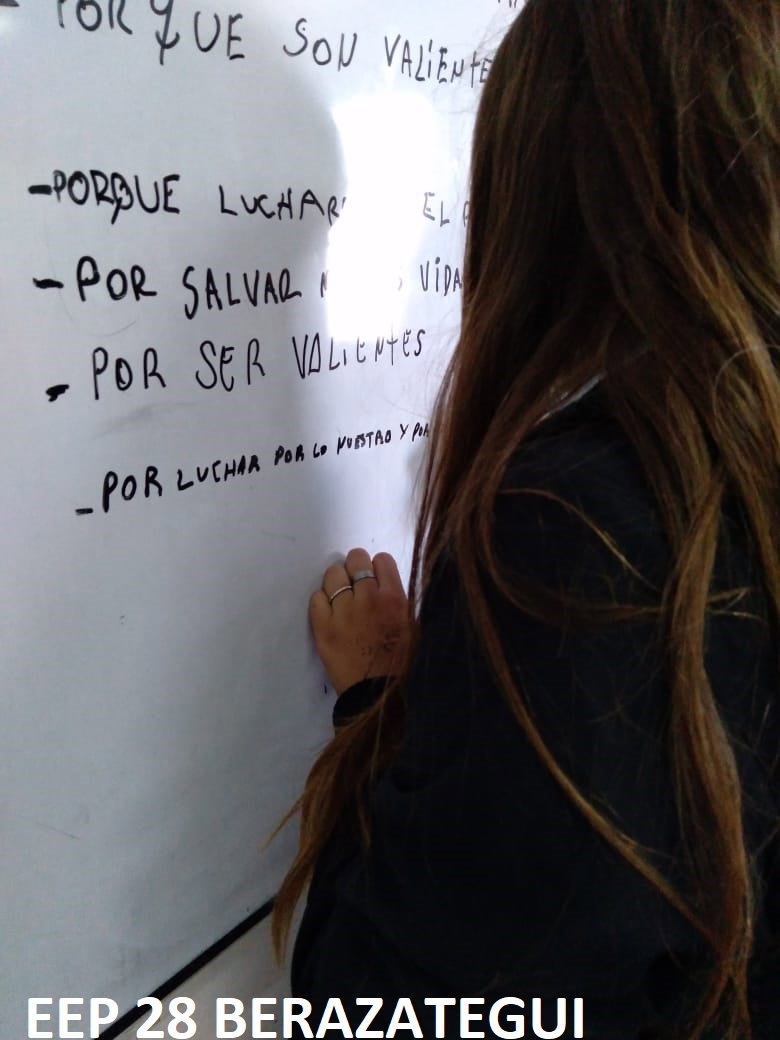 PORQUE SON VALIENTE
-PORQUE LUCHAR EL
- POR SALVAR VIDA
- POR SER VALIENTES
- POR LUCHAR POR LO NUESTRO Y POR
EEP 28 BERAZATEGUI